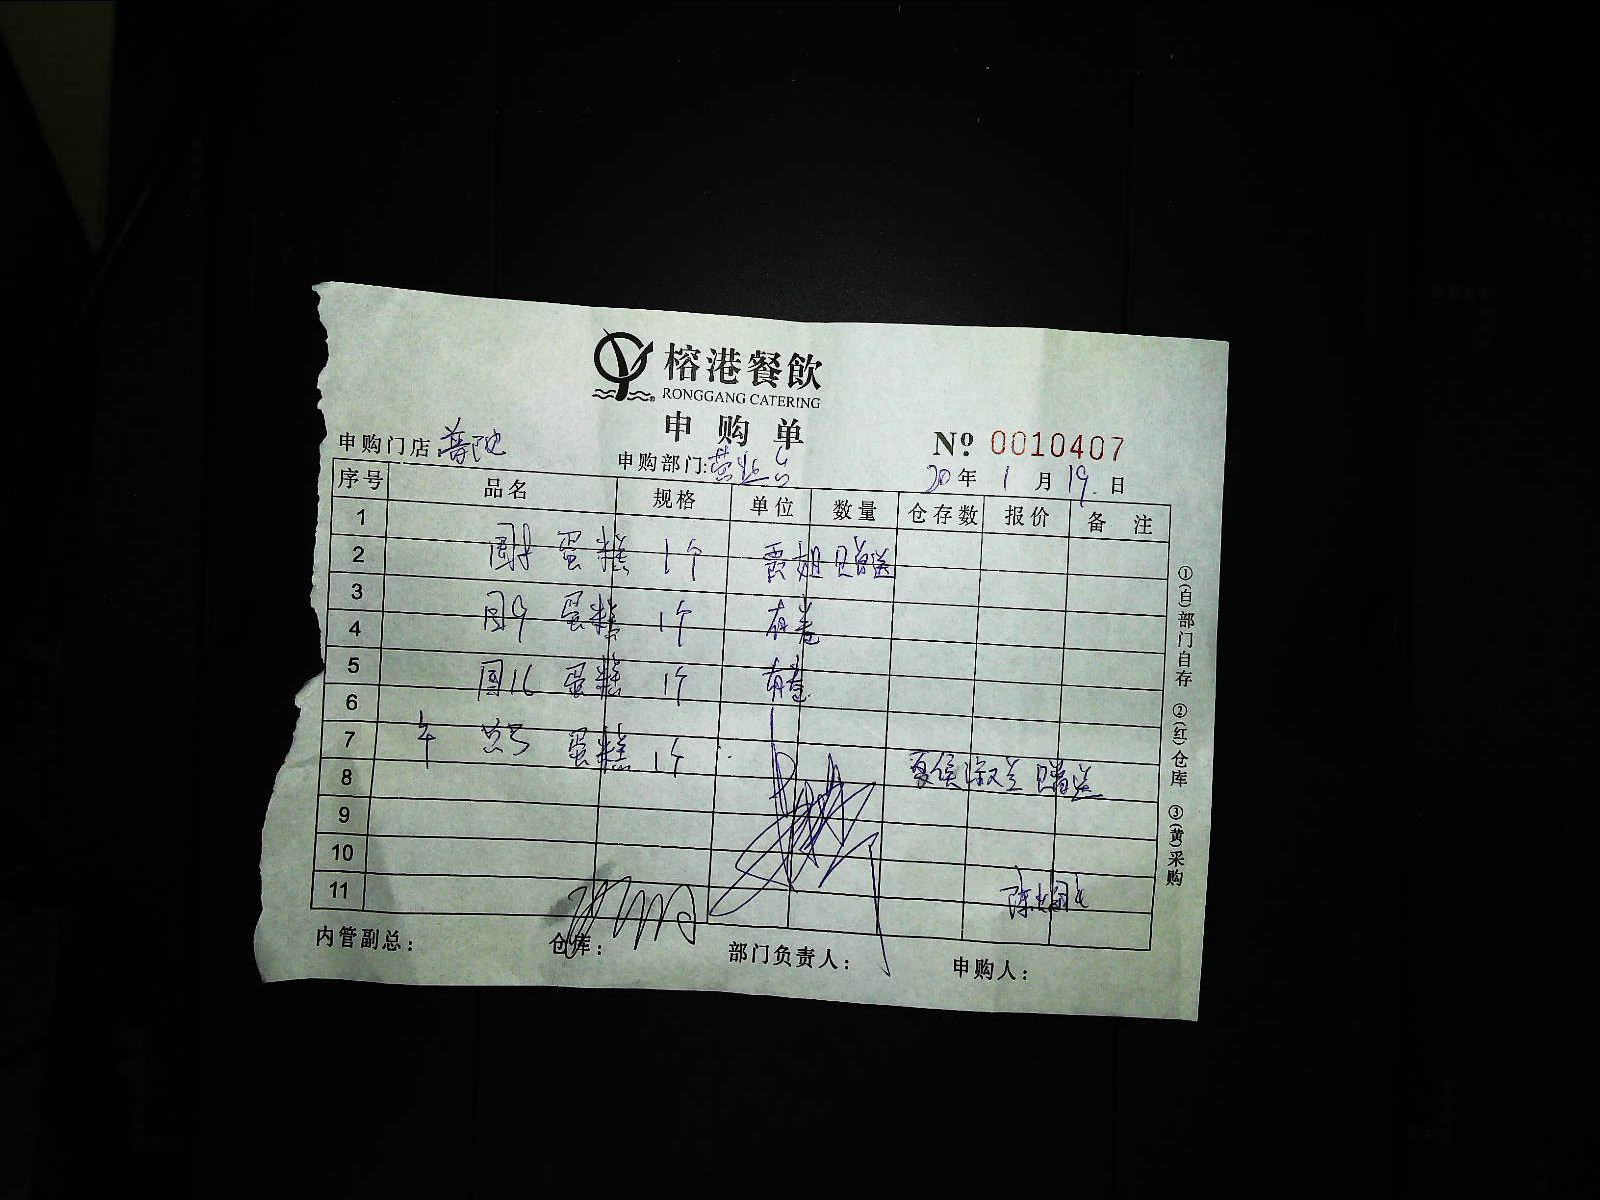 榕港餐飲
RONGGANG CATERING
申购单
申购门店 普陀
申购部门: 营业台
Nº 0010407
20年 1月 19.日
序号 品名 规格 单位 数量 仓存数 报价 备注
1
2 蛋糕 1个 霞姐赠送
3
4 蛋糕 1个 有卷
5 国16 蛋糕 1个 有卷
6
7 午 蛋糕 1个 夏侯淑兰赠送
8
9
10
11
内管副总: 仓库: 部门负责人: 申购人:
①(白)部门自存 ②(红)仓库 ③(黄)采购